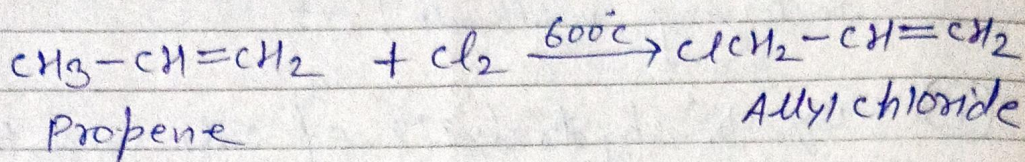 CH3-CH=CH2 + Cl2 600°C → ClCH2-CH=CH2
Propene Allyl chloride